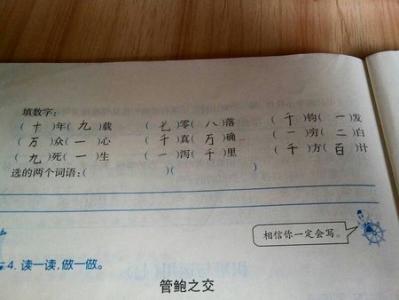 填数字:
(十)年(九)载 (七)零(八)落 (千)钧(一)发
(万)众(一)心 (千)真(万)确 (一)穷(二)白
(九)死(一)生 (一)泻(千)里 (千)方(百)计
选的两个词语:( )( )
相信你一定会写。
4. 读一读,做一做。
管鲍之交